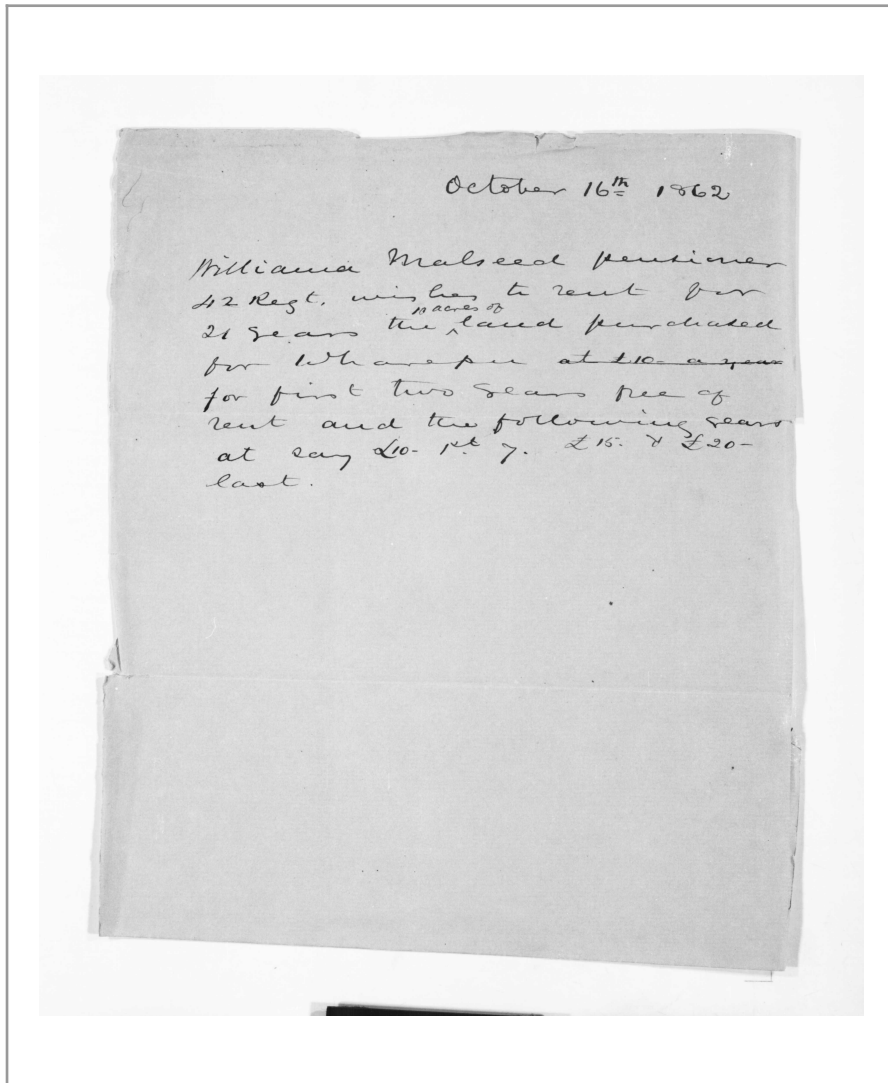 October 16th 1862
William Malseed pensioner
42 Regt. wishes to rent for
21 years the 10 acres of land purchased
for Wharepu at £10- a year
for first two years free of
rent and the following years
at say £10- 1st. 7. £15. & £20-
last.